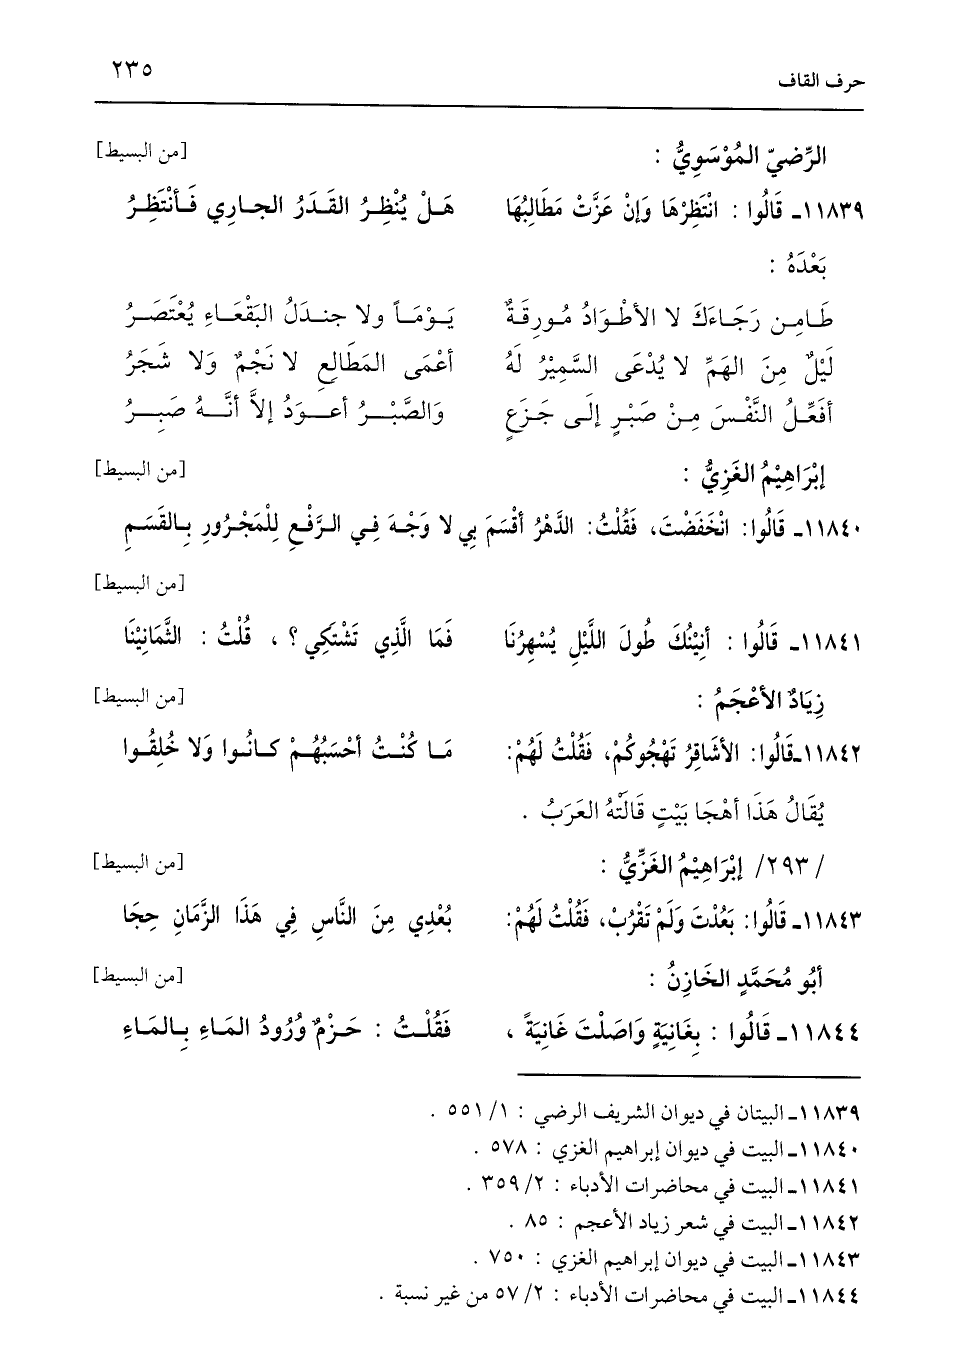 حرف القاف ٢٣٥
الرِّضيّ المُوْسَوِيُّ : [من البسيط]
١١٨٣٩ـ قَالُوا : انْتَظِرْهَا وَإِنْ عَزَّتْ مَطَالِبُهَا هَلْ يُنْظِرُ القَدَرُ الجارِي فَأَنْتَظِرُ
بَعْدَهُ :
طَامِن رَجَاءَكَ لا الأطْوَادُ مُورِقَةٌ يَوْمَاً ولا جندَلُ البَقْعَاءِ يُعْتَصَرُ
لَيْلٌ مِنَ الهَمِّ لا يُدْعَى السَّمِيْرُ لَهُ أعْمَى المَطَالِعِ لا نَجْمٌ وَلا شَجَرُ
أفَعِّلُ النَّفْسَ مِنْ صَبْرٍ إلَى جَزَعٍ وَالصَّبْرُ أعوَدُ إلاَّ أنَّهُ صَبِرُ
إبْرَاهِيْمُ الغَزِيُّ : [من البسيط]
١١٨٤٠ـ قَالُوا: انْخَفَضْتَ، فَقُلْتُ: الدَّهْرُ أقْسَمَ بِي لا وَجْهَ فِي الرَّفْعِ لِلْمَجْرُورِ بِالقَسَمِ
[من البسيط]
١١٨٤١ـ قَالُوا : أنِيْنُكَ طُولَ اللَّيْلِ يُسْهِرُنَا فَمَا الَّذِي تَشْتَكِي؟ ، قُلْتُ : الثَّمَانِيْنَا
زِيَادٌ الأعْجَمُ : [من البسيط]
١١٨٤٢ـقَالُوا: الأشَاقِرُ تَهْجُوكُمْ، فَقُلْتُ لَهُمْ: مَا كُنْتُ أحْسَبُهُمْ كَانُوا وَلا خُلِقُوا
يُقَالُ هَذَا أهْجَا بَيْتٍ قَالَتْهُ العَرَبُ .
/ ٢٩٣/ إبْرَاهِيْمُ الغَزِّيُّ : [من البسيط]
١١٨٤٣ـ قَالُوا: بَعُدْتَ وَلَمْ تَقْرُبْ، فَقُلْتُ لَهُمْ: بُعْدِي مِنَ النَّاسِ فِي هَذَا الزَّمَانِ حِجَا
أبُو مُحَمَّدٍ الخَازِنُ : [من البسيط]
١١٨٤٤ـ قَالُوا : بِغَانِيَةٍ وَاصَلْتَ غَانِيَةً ، فَقُلْتُ : حَزْمٌ وُرُودُ المَاءِ بِالمَاءِ
١١٨٣٩ـ البيتان في ديوان الشريف الرضي : ١/ ٥٥١ .
١١٨٤٠ـ البيت في ديوان إبراهيم الغزي : ٥٧٨ .
١١٨٤١ـ البيت في محاضرات الأدباء : ٢/ ٣٥٩ .
١١٨٤٢ـ البيت في شعر زياد الأعجم : ٨٥ .
١١٨٤٣ـ البيت في ديوان إبراهيم الغزي : ٧٥٠ .
١١٨٤٤ـ البيت في محاضرات الأدباء : ٢/ ٥٧ من غير نسبة .